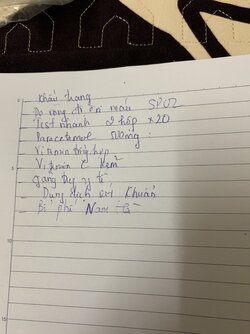 Khẩu trang
Đo nồng độ oxi máu SPO2
Test nhanh 2 hộp x20
Paracetamol 500mg :
Vitamin tổng hợp
Vitamin C kẽm
găng tay y tế
Dung dịch sát khuẩn
Bổ phế Nam Hà